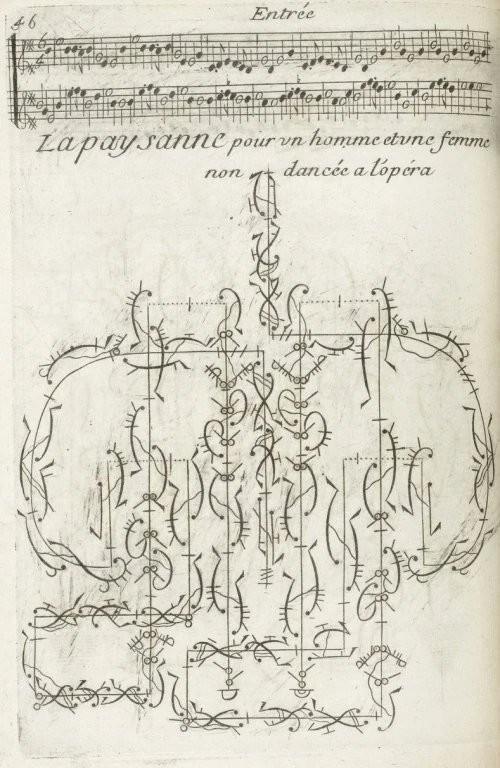 46
Entrée
La paysanne pour vn homme et vne femme
non dancée a l'opéra